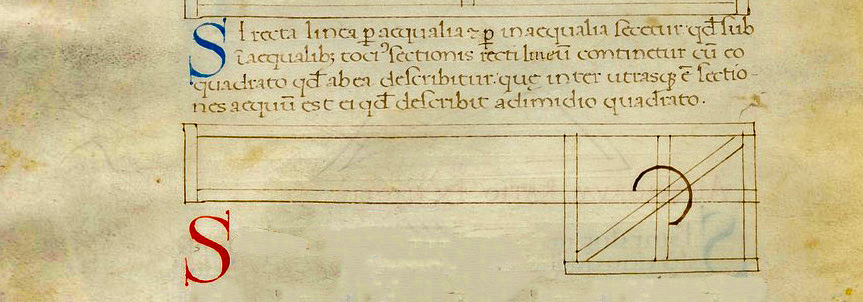 SI recta linea p̱ aequalia ⁊ p̱ inaequalia secetur· qd̄ sub
īaequalib; toci᾿ sectionis recti lineū continetur cū eo
quadrato qd̄ ab ea describitur· quę inter utrasq; ē sectio-
nes aequū est ei qd̄ describit᾿ a dimidio quadrato.
S